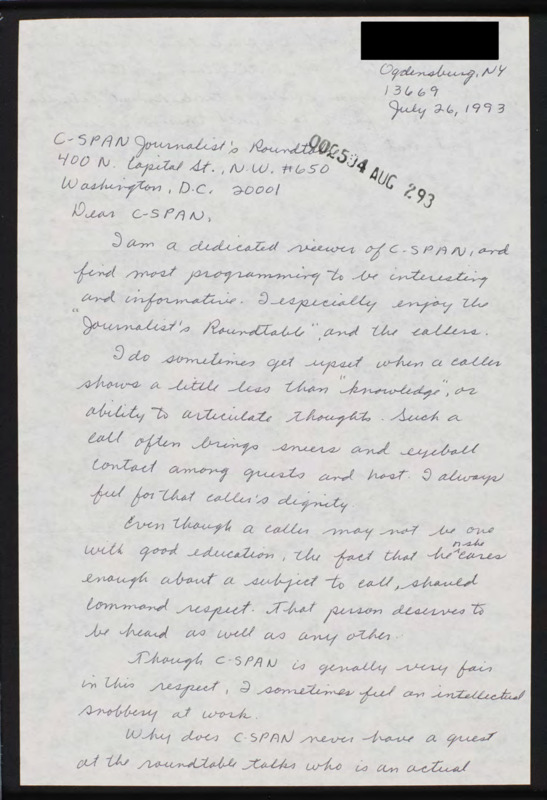 Ogdensburg, NY
13669
July 26, 1993
C-SPAN Journalist's Roundtable
400 N. Capital St., N.W. #650
Washington, D.C. 20001
AUG 293
Dear C-SPAN,
I am a dedicated viewer of C-SPAN, and
find most programming to be interesting
and informative. I especially enjoy the
"Journalist's Roundtable", and the callers.
I do sometimes get upset when a caller
shows a little less than "knowledge", or
ability to articulate thoughts. Such a
call often brings sneers and eyeball
contact among guests and host. I always
feel for that caller's dignity.
Even though a caller may not be one
with good education, the fact that he r she cares
enough about a subject to call, should
command respect. That person deserves to
be heard as well as any other.
Though C-SPAN is genally very fair
in this respect, I sometimes feel an intellectual
snobbery at work.
Why does C-SPAN never have a guest
at the roundtable talks who is an actual